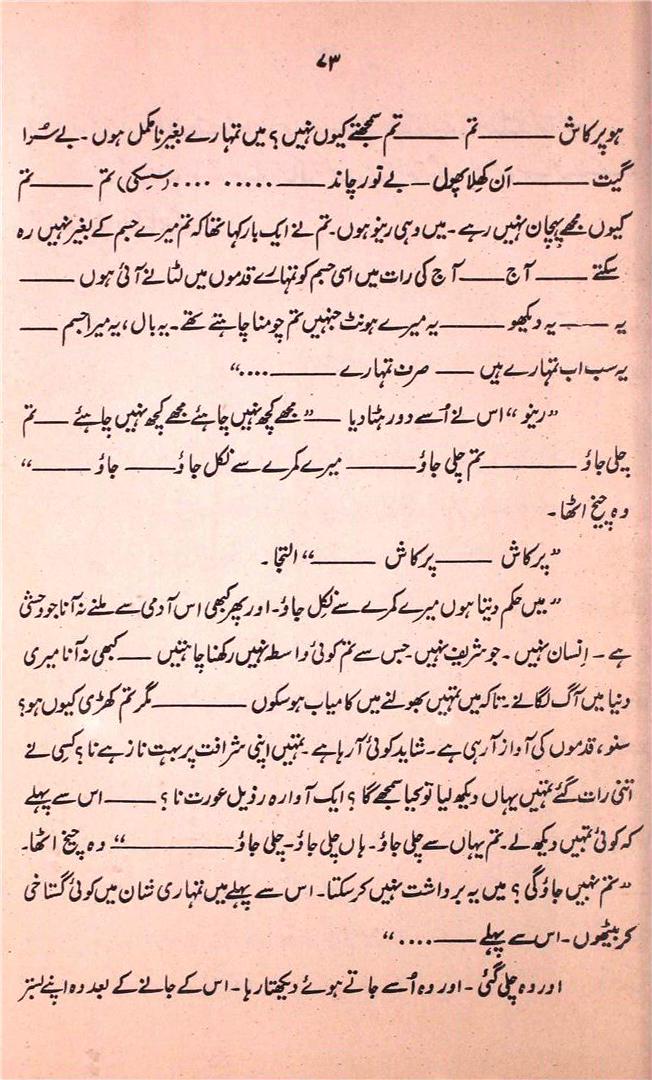 ۷۳
ہو پرکاش ——— تم ——— تم سمجھتے کیوں نہیں؟ میں تمہارے بغیر نامکمل ہوں۔ بے سُرا
گیت ——— اَن کھِلا پھول — بے نور چاند ——— ..... .... (سسکی) تم ——— تم
کیوں مجھے پہچان نہیں رہے۔ میں وہی رینو ہوں۔ تم نے ایک بار کہا تھا کہ تم میرے جسم کے بغیر نہیں رہ
سکتے ——— آج ——— آج کی رات میں اسی جسم کو تمہارے قدموں میں لٹانے آئی ہوں ———
یہ ——— یہ دیکھو ——— یہ میرے ہونٹ جنہیں تم چومنا چاہتے تھے۔ یہ بال، یہ میرا جسم ———
یہ سب اب تمہارے ہیں — صرف تمہارے ——— ...."
"رینو" اس نے اُسے دور ہٹا دیا — "مجھے کچھ نہیں چاہئے مجھے کچھ نہیں چاہئے — تم
چلی جاؤ ——— تم چلی جاؤ ——— میرے کمرے سے نکل جاؤ ——— جاؤ ———"
وہ چیخ اٹھا۔
"پرکاش ——— پرکاش ———" التجا۔
"میں حکم دیتا ہوں میرے کمرے سے نکل جاؤ۔ اور پھر کبھی اس آدمی سے ملنے نہ آنا جو وحشی
ہے۔ انسان نہیں۔ جو شریف نہیں۔ جس سے تم کوئی واسطہ نہیں رکھنا چاہتیں — کبھی نہ آنا میری
دنیا میں آگ لگانے۔ تاکہ میں تمہیں بھولنے میں کامیاب ہو سکوں ——— مگر تم کھڑی کیوں ہو؟
سنو، قدموں کی آواز آ رہی ہے۔ شاید کوئی آ رہا ہے۔ تمہیں اپنی شرافت پر بہت ناز ہے نا؟ کسی نے
اتنی رات گئے تمہیں یہاں دیکھ لیا تو کیا سمجھے گا؟ ایک آوارہ رذیل عورت نا؟ — اس سے پہلے
کہ کوئی تمہیں دیکھ لے۔ تم یہاں سے چلی جاؤ۔ ہاں چلی جاؤ۔ چلی جاؤ ———" وہ چیخ اٹھا۔
"تم نہیں جاؤ گی؟ میں یہ برداشت نہیں کر سکتا۔ اس سے پہلے میں تمہاری شان میں کوئی گستاخی
کر بیٹھوں۔ اس سے پہلے ——— ...."
اور وہ چلی گئی۔ اور وہ اُسے جاتے ہوئے دیکھتا رہا۔ اس کے جانے کے بعد وہ اپنے بستر